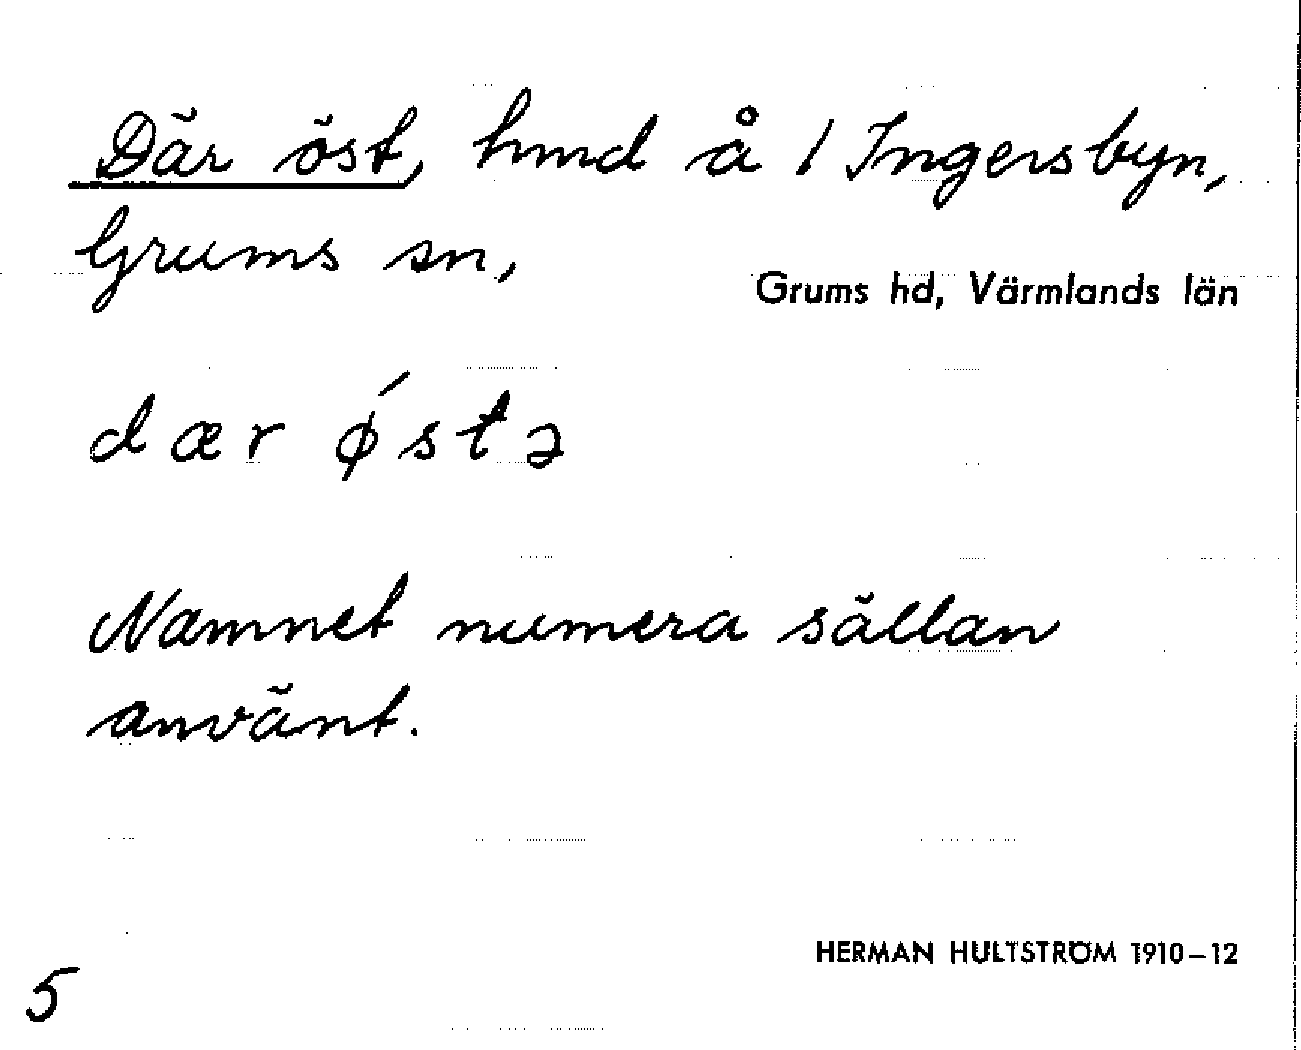 Där öst, hmd å 1 Ingersbyn,
Grums sn,
Grums hd, Värmlands län
dær ǿstə
Namnet numera sällan
använt.
HERMAN HULTSTRÖM 1910–12
5